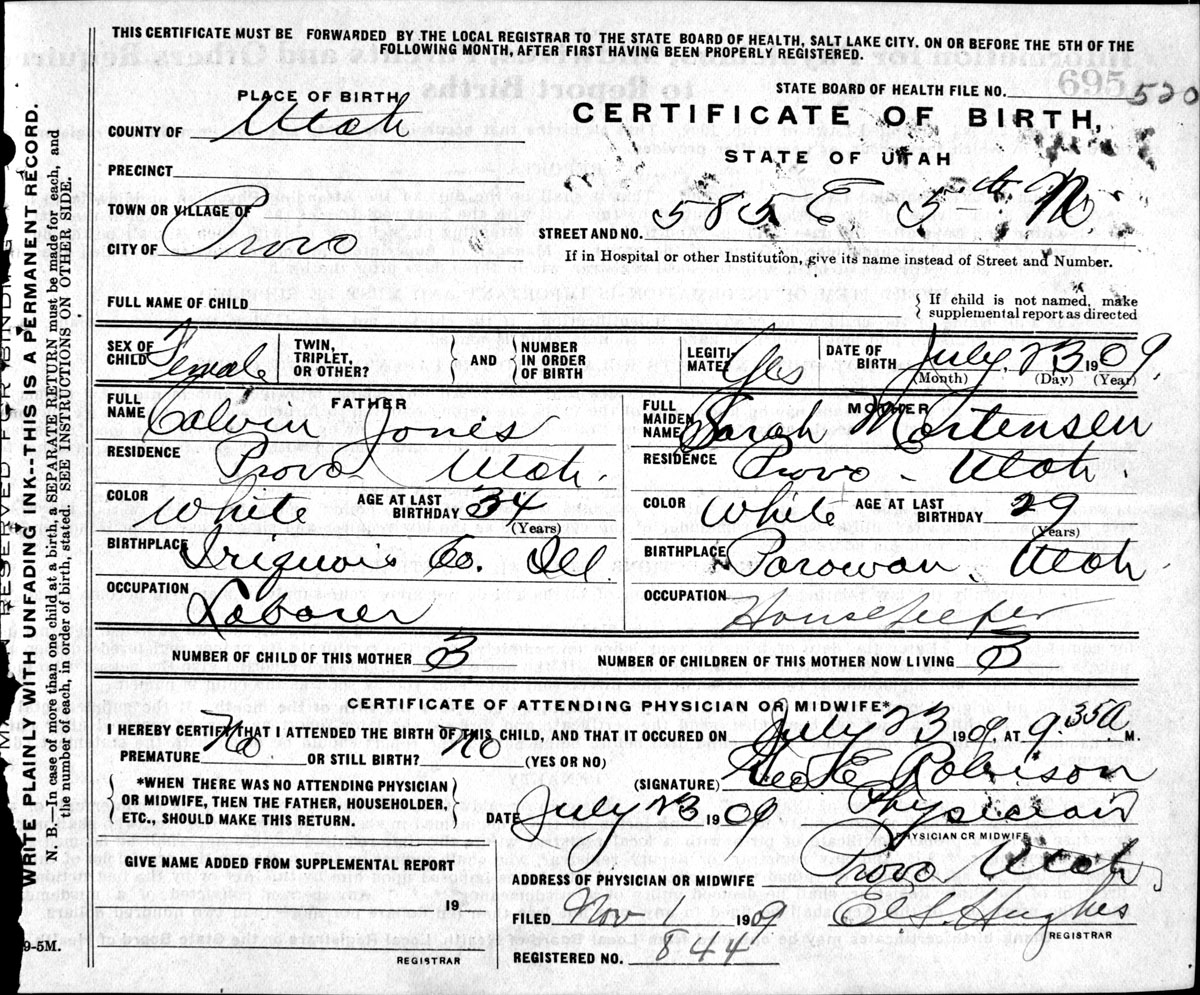 THIS CERTIFICATE MUST BE FORWARDED BY THE LOCAL REGISTRAR TO THE STATE BOARD OF HEALTH, SALT LAKE CITY. ON OR BEFORE THE 5TH OF THE
FOLLOWING MONTH, AFTER FIRST HAVING BEEN PROPERLY REGISTERED.
STATE BOARD OF HEALTH FILE NO. 520
695
PLACE OF BIRTH
CERTIFICATE OF BIRTH,
STATE OF UTAH
COUNTY OF Utah
PRECINCT
TOWN OR VILLAGE OF
CITY OF Provo
STREET AND NO. 585 E 5th No
If in Hospital or other Institution, give its name instead of Street and Number.
FULL NAME OF CHILD
If child is not named, make
supplemental report as directed
SEX OF CHILD Female
TWIN, TRIPLET, OR OTHER?
AND
NUMBER IN ORDER OF BIRTH
LEGITI-MATE? Yes
DATE OF BIRTH July 23 1909.
(Month) (Day) (Year)
FATHER
FULL NAME Calvin Jones
RESIDENCE Provo Utah.
COLOR White AGE AT LAST BIRTHDAY 34
(Years)
BIRTHPLACE Iriquois Co. Ill.
OCCUPATION Laborer
MOTHER
FULL MAIDEN NAME Sarah Mortensen
RESIDENCE Provo - Utah
COLOR White AGE AT LAST BIRTHDAY 29
(Years)
BIRTHPLACE Parowan. Utah.
OCCUPATION Housekeeper
NUMBER OF CHILD OF THIS MOTHER 3
NUMBER OF CHILDREN OF THIS MOTHER NOW LIVING 3
CERTIFICATE OF ATTENDING PHYSICIAN OR MIDWIFE*
I HEREBY CERTIFY THAT I ATTENDED THE BIRTH OF THIS CHILD, AND THAT IT OCCURED ON July 23 1909, AT 9.35 A. M.
PREMATURE No OR STILL BIRTH? No (YES OR NO)
(SIGNATURE) Robison
*WHEN THERE WAS NO ATTENDING PHYSICIAN
OR MIDWIFE, THEN THE FATHER, HOUSEHOLDER,
ETC., SHOULD MAKE THIS RETURN.
DATE July 23 1909
Physician
PHYSICIAN OR MIDWIFE
GIVE NAME ADDED FROM SUPPLEMENTAL REPORT
19
REGISTRAR
ADDRESS OF PHYSICIAN OR MIDWIFE Provo Utah
FILED Nov 1909
Hughes
REGISTRAR
REGISTERED NO. 844
9-5M.
RESERVED FOR BINDING
WRITE PLAINLY WITH UNFADING INK--THIS IS A PERMANENT RECORD.
N. B.—In case of more than one child at a birth, a SEPARATE RETURN must be made for each, and
the number of each, in order of birth, stated. SEE INSTRUCTIONS ON OTHER SIDE.